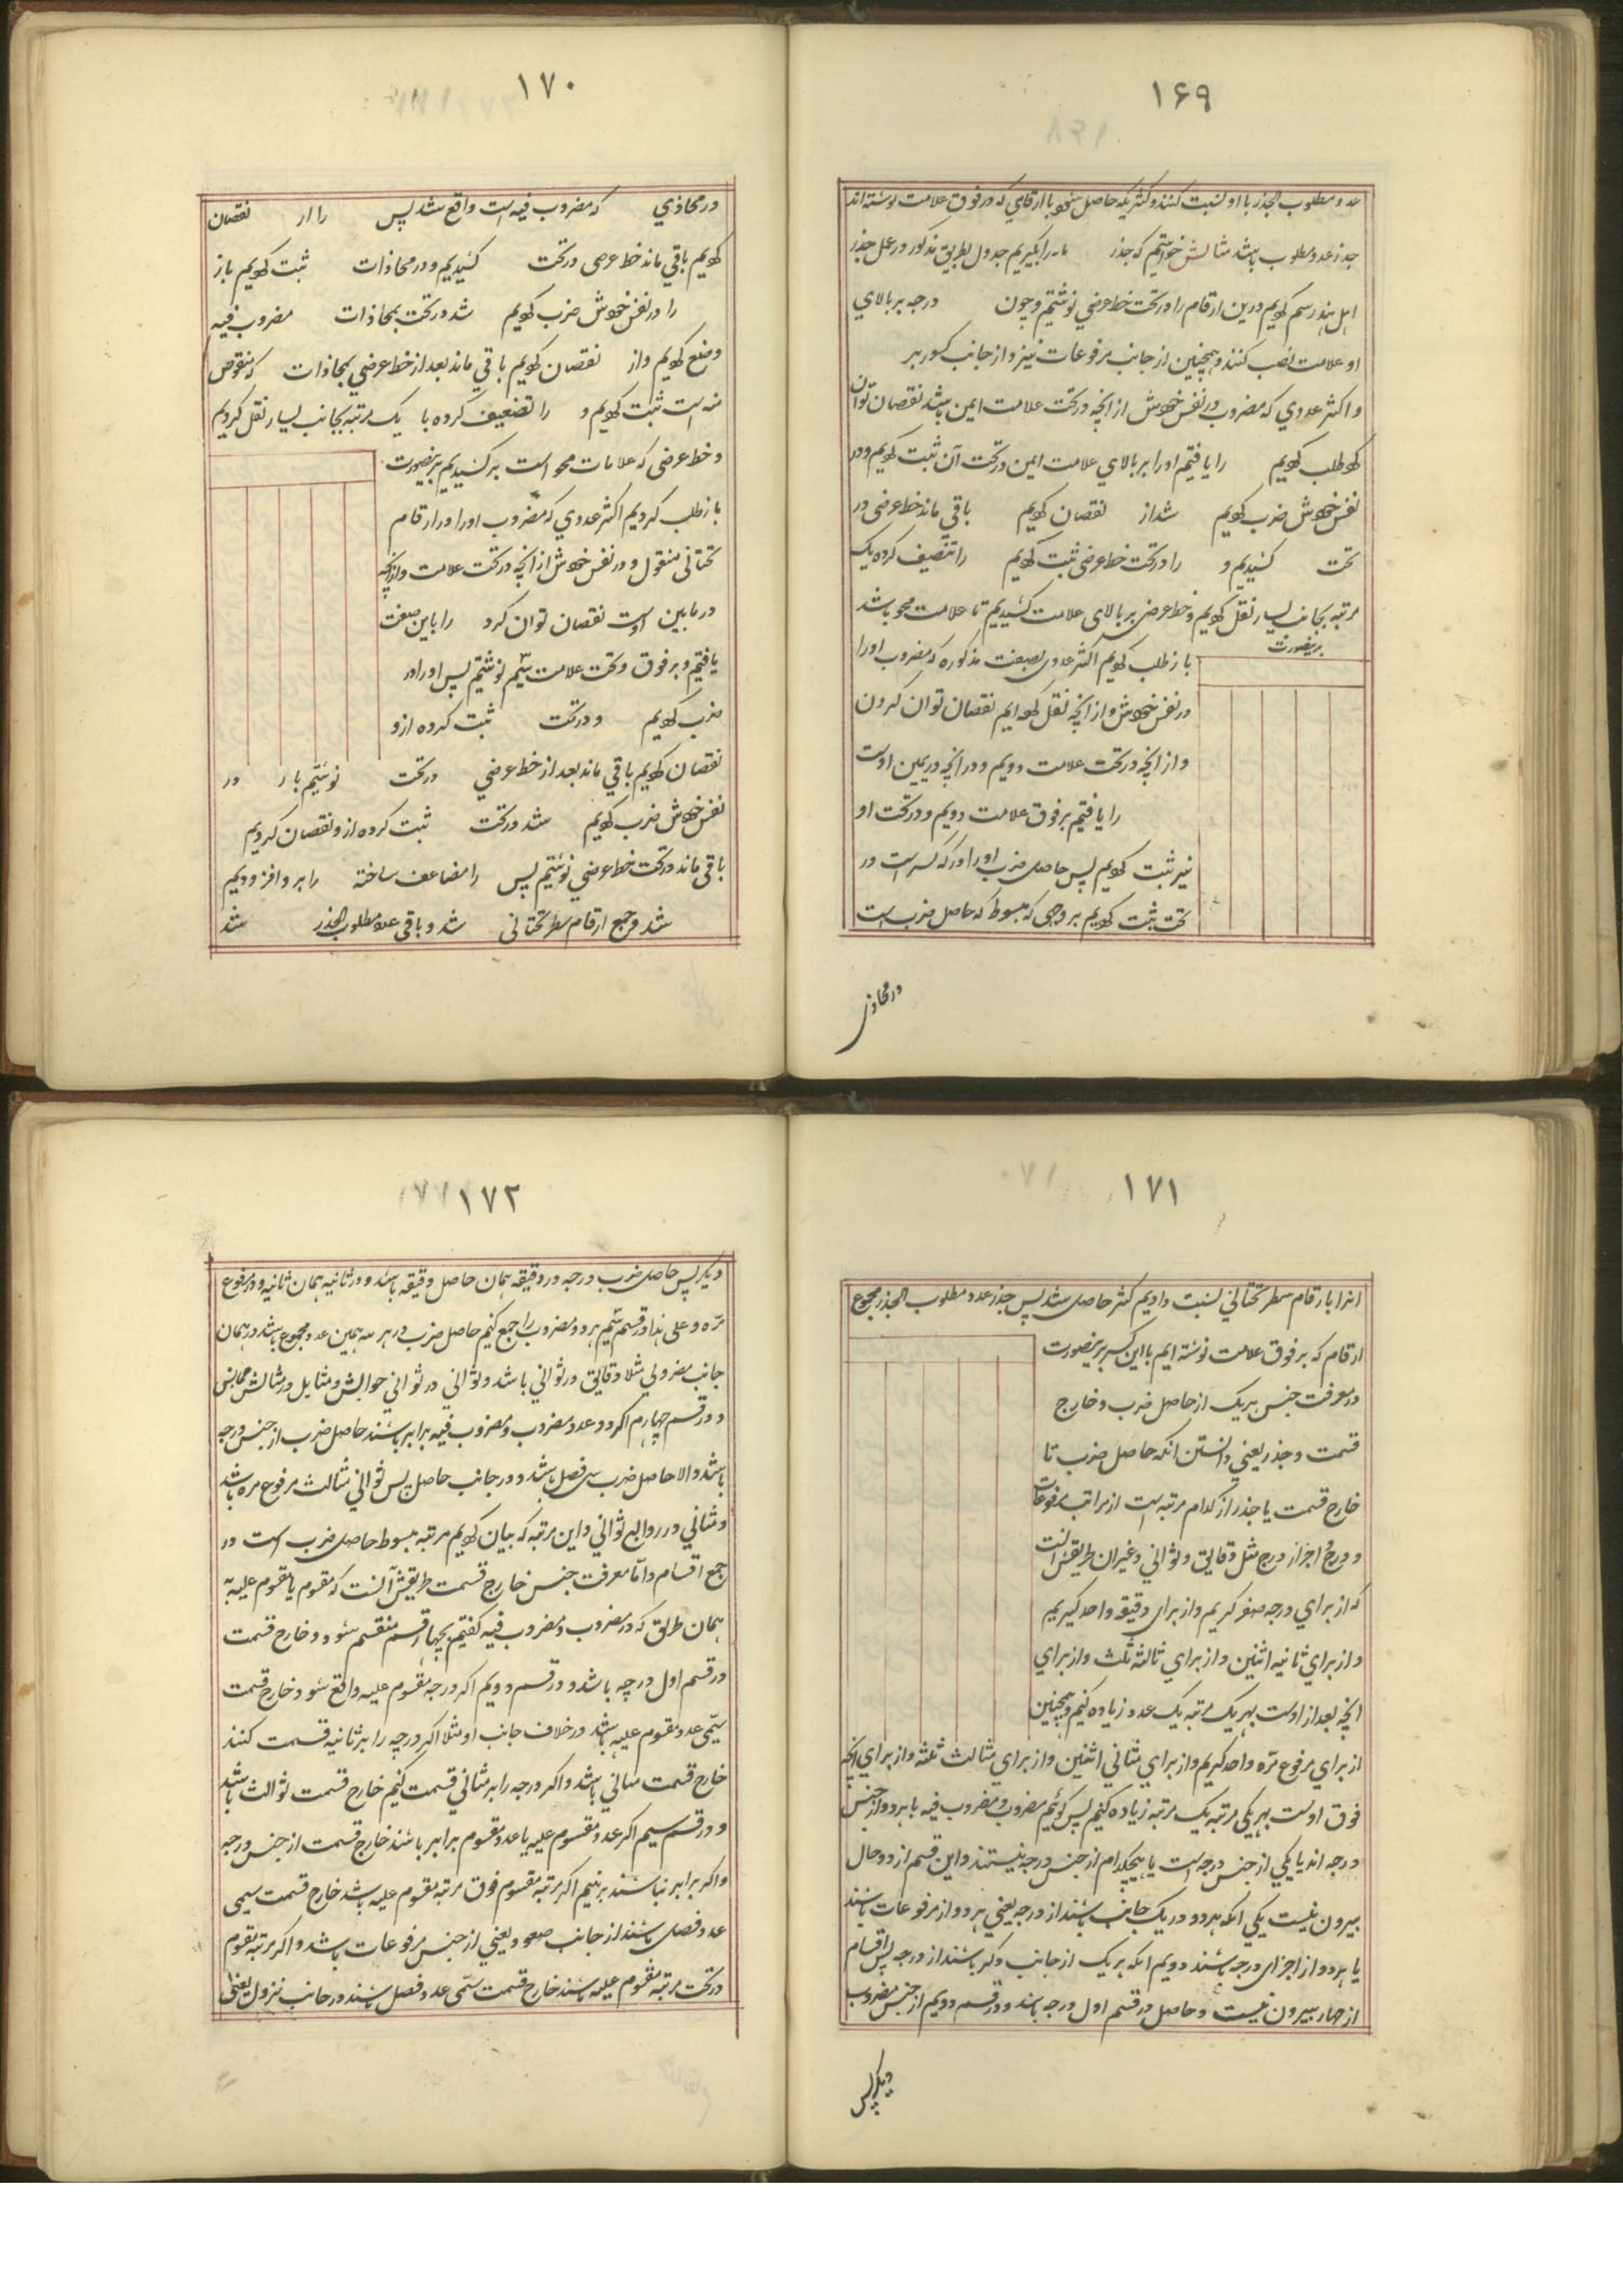 ۱۶۹
عدد مطلوب الجذر با او نسبت کنند و کثریکه حاصل شود با ارقامی که در فوق علامت نوشته اند
جذر عدد مطلوب باشد مثالش خواستیم که جذر را بگیریم جدول بطریق مذکور در عمل جذر
اهل هند رسم کردیم و درین ارقام را در تحت خط عرضی نوشتیم و چون درجه بر بالای
او علامت نصب کنند و همچنین از جانب مرفوعات نیز و از جانب کسور بر
و اکثر عددی که مضروب در نفس خودش از انچه در تحت علامت ایمن باشد نقصان توان
کرد طلب کردیم را یافتیم او را بر بالای علامت ایمن و در تحت آن ثبت کردیم و در
نفس خودش ضرب کردیم شد از نقصان کردیم باقی ماند خط عرضی در
تحت کشیدیم و را در تحت خط عرضی ثبت کردیم را تنصیف کرده یک
مرتبه بجانب یسار نقل کردیم و خط عرضی بر بالای علامت کشیدیم تا علامت محو باشد
برینصورت
باز طلب کردیم اکثر عددی بصفت مذکوره که مضروب او را
در نفس خودش و از انچه نقل کرده ایم نقصان توان کردن
و از انچه در تحت علامت دویم و در انچه در یمین اوست
را یافتیم بر فوق علامت دویم و در تحت او
نیز ثبت کردیم پس حاصل ضرب او را در که یسر است در
تحت ثبت کردیم بر وجهی که مبسوط که حاصل ضرب است
در محاذی
۱۷۰
در محاذی که مضروب فیه است واقع شد پس را از نقصان
کردیم باقی ماند خط عرضی در تحت کشیدیم و در محاذات ثبت کردیم باز
را در نفس خودش ضرب کردیم شد در تحت بمحاذات مضروب فیه
وضع کردیم و از نقصان کردیم باقی ماند بعد از خط عرضی بمحاذات که منقوص
منه است ثبت کردیم و را تضعیف کرده با یک مرتبه بجانب یسار نقل کردیم
و خط عرضی که علامات محو است بر کشیدیم برینصورت
باز طلب کردیم اکثر عددی که مضروب او را در ارقام
تحتانی منقول و در نفس خودش از انچه در تحت علامت و از انچه
در مابین اوست نقصان توان کرد را باین صفت
یافتیم و بر فوق و تحت علامت سیم نوشتیم پس او را در
ضرب کردیم و در تحت ثبت کرده از و
نقصان کردیم باقی ماند بعد از خط عرضی در تحت نوشتیم باز در
نفس خودش ضرب کردیم شد در تحت ثبت کرده از و نقصان کردیم
باقی ماند در تحت خط عرضی نوشتیم پس را مضاعف ساخته را بر و افزودیم
شد و جمع ارقام سطر تحتانی شد و باقی عدد مطلوب الجذر شد
۱۷۱
انرا بارقام سطر تحتانی نسبت دادیم کثر حاصل شد پس جذر عدد مطلوب الجذر مجموع
ارقام که بر فوق علامت نوشته ایم با این کسر برینصورت
در معرفت جنس هریک از حاصل ضرب و خارج
قسمت و جذر یعنی دانستن انکه حاصل ضرب تا
خارج قسمت یا جذر از کدام مرتبه است از مراتب مرفوعات
و درج و اجزاء درج مثل دقایق و ثوانی و غیران طریقش انست
که از برای درجه صفر کریم و از برای دقیقه واحد کیریم
و از برای ثانیه اثنین و از برای ثالثه ثلث و از برای
انچه بعد از اوست بهر یک مرتبه یک عدد زیاده کنیم و همچنین
از برای مرفوع مره واحد کیریم و از برای مثانی اثنین و از برای مثالث ثلثه و از برای انچه
فوق اوست بهر یکی مرتبه یک مرتبه زیاده کنیم پس کوئیم مضروب و مضروب فیه یا هر دو از جنس
درجه اند یا یکی از جنس درجه است یا هیچکدام از جنس درجه نیستند و این قسم از دو حال
بیرون نیست یکی انکه هر دو در یک جانب باشند از درجه یعنی هر دو از مرفوعات باشند
یا هر دو از اجزای درجه باشند دویم انکه هر یک از جانب دکر باشند از درجه پس اقسام
از چهار بیرون نیست و حاصل در قسم اول درجه باشد و در قسم دویم از جنس مضروب
دیکر پس
۱۷۲
دیکر پس حاصل ضرب درجه در دقیقه همان حاصل دقیقه باشد و در ثانیه همان ثانیه و در مرفوع
مره و علی هذا و در قسم سیم هر دو مضروب را جمع کنیم حاصل ضرب در هر سه همین عدد مجموع باشد در همان
جانب مضروبی مثلا دقایق در ثوانی باشد و ثوانی در ثوانی
و در قسم چهارم اکر دو عدد مضروب و مضروب فیه برابر باشند حاصل ضرب از جنس درجه
باشد و الا حاصل ضرب سی فصل باشد و در جانب حاصل پس ثوانی مثالث مرفوع مره باشد
و مثانی در روابع ثوانی و این مرتبه که بیان کردیم مرتبه مبسوط حاصل ضرب است در
جمع اقسام و اما معرفت جنس خارج قسمت طریقش آنست که مقسوم یا مقسوم علیه به
همان طریق که در مضروب و مضروب فیه کفتیم بچهار قسم منقسم شود و خارج قسمت
در قسم اول درجه باشد و در قسم دویم اکر درجه مقسوم علیه واقع شود خارج قسمت
سمی عدد مقسوم علیه باشد در خلاف جانب او مثلا اکر درجه را بر ثانیه قسمت کنند
خارج قسمت مثانی باشد و اکر درجه را بر مثانی قسمت کنیم خارج قسمت ثوالث باشد
و در قسم سیم اکر عدد مقسوم علیه با عدد مقسوم برابر باشند خارج قسمت از جنس درجه
و اکر برابر نباشند بربنیم اکر مرتبه مقسوم فوق مرتبه مقسوم علیه باشد خارج قسمت سمی
عدد فصل باشند از جانب صعود یعنی از جنس مرفوعات باشد و اکر مرتبه مقسوم
در تحت مرتبه مقسوم علیه باشند خارج قسمت سمی عدد فصل باشند در جانب نزول یعنی